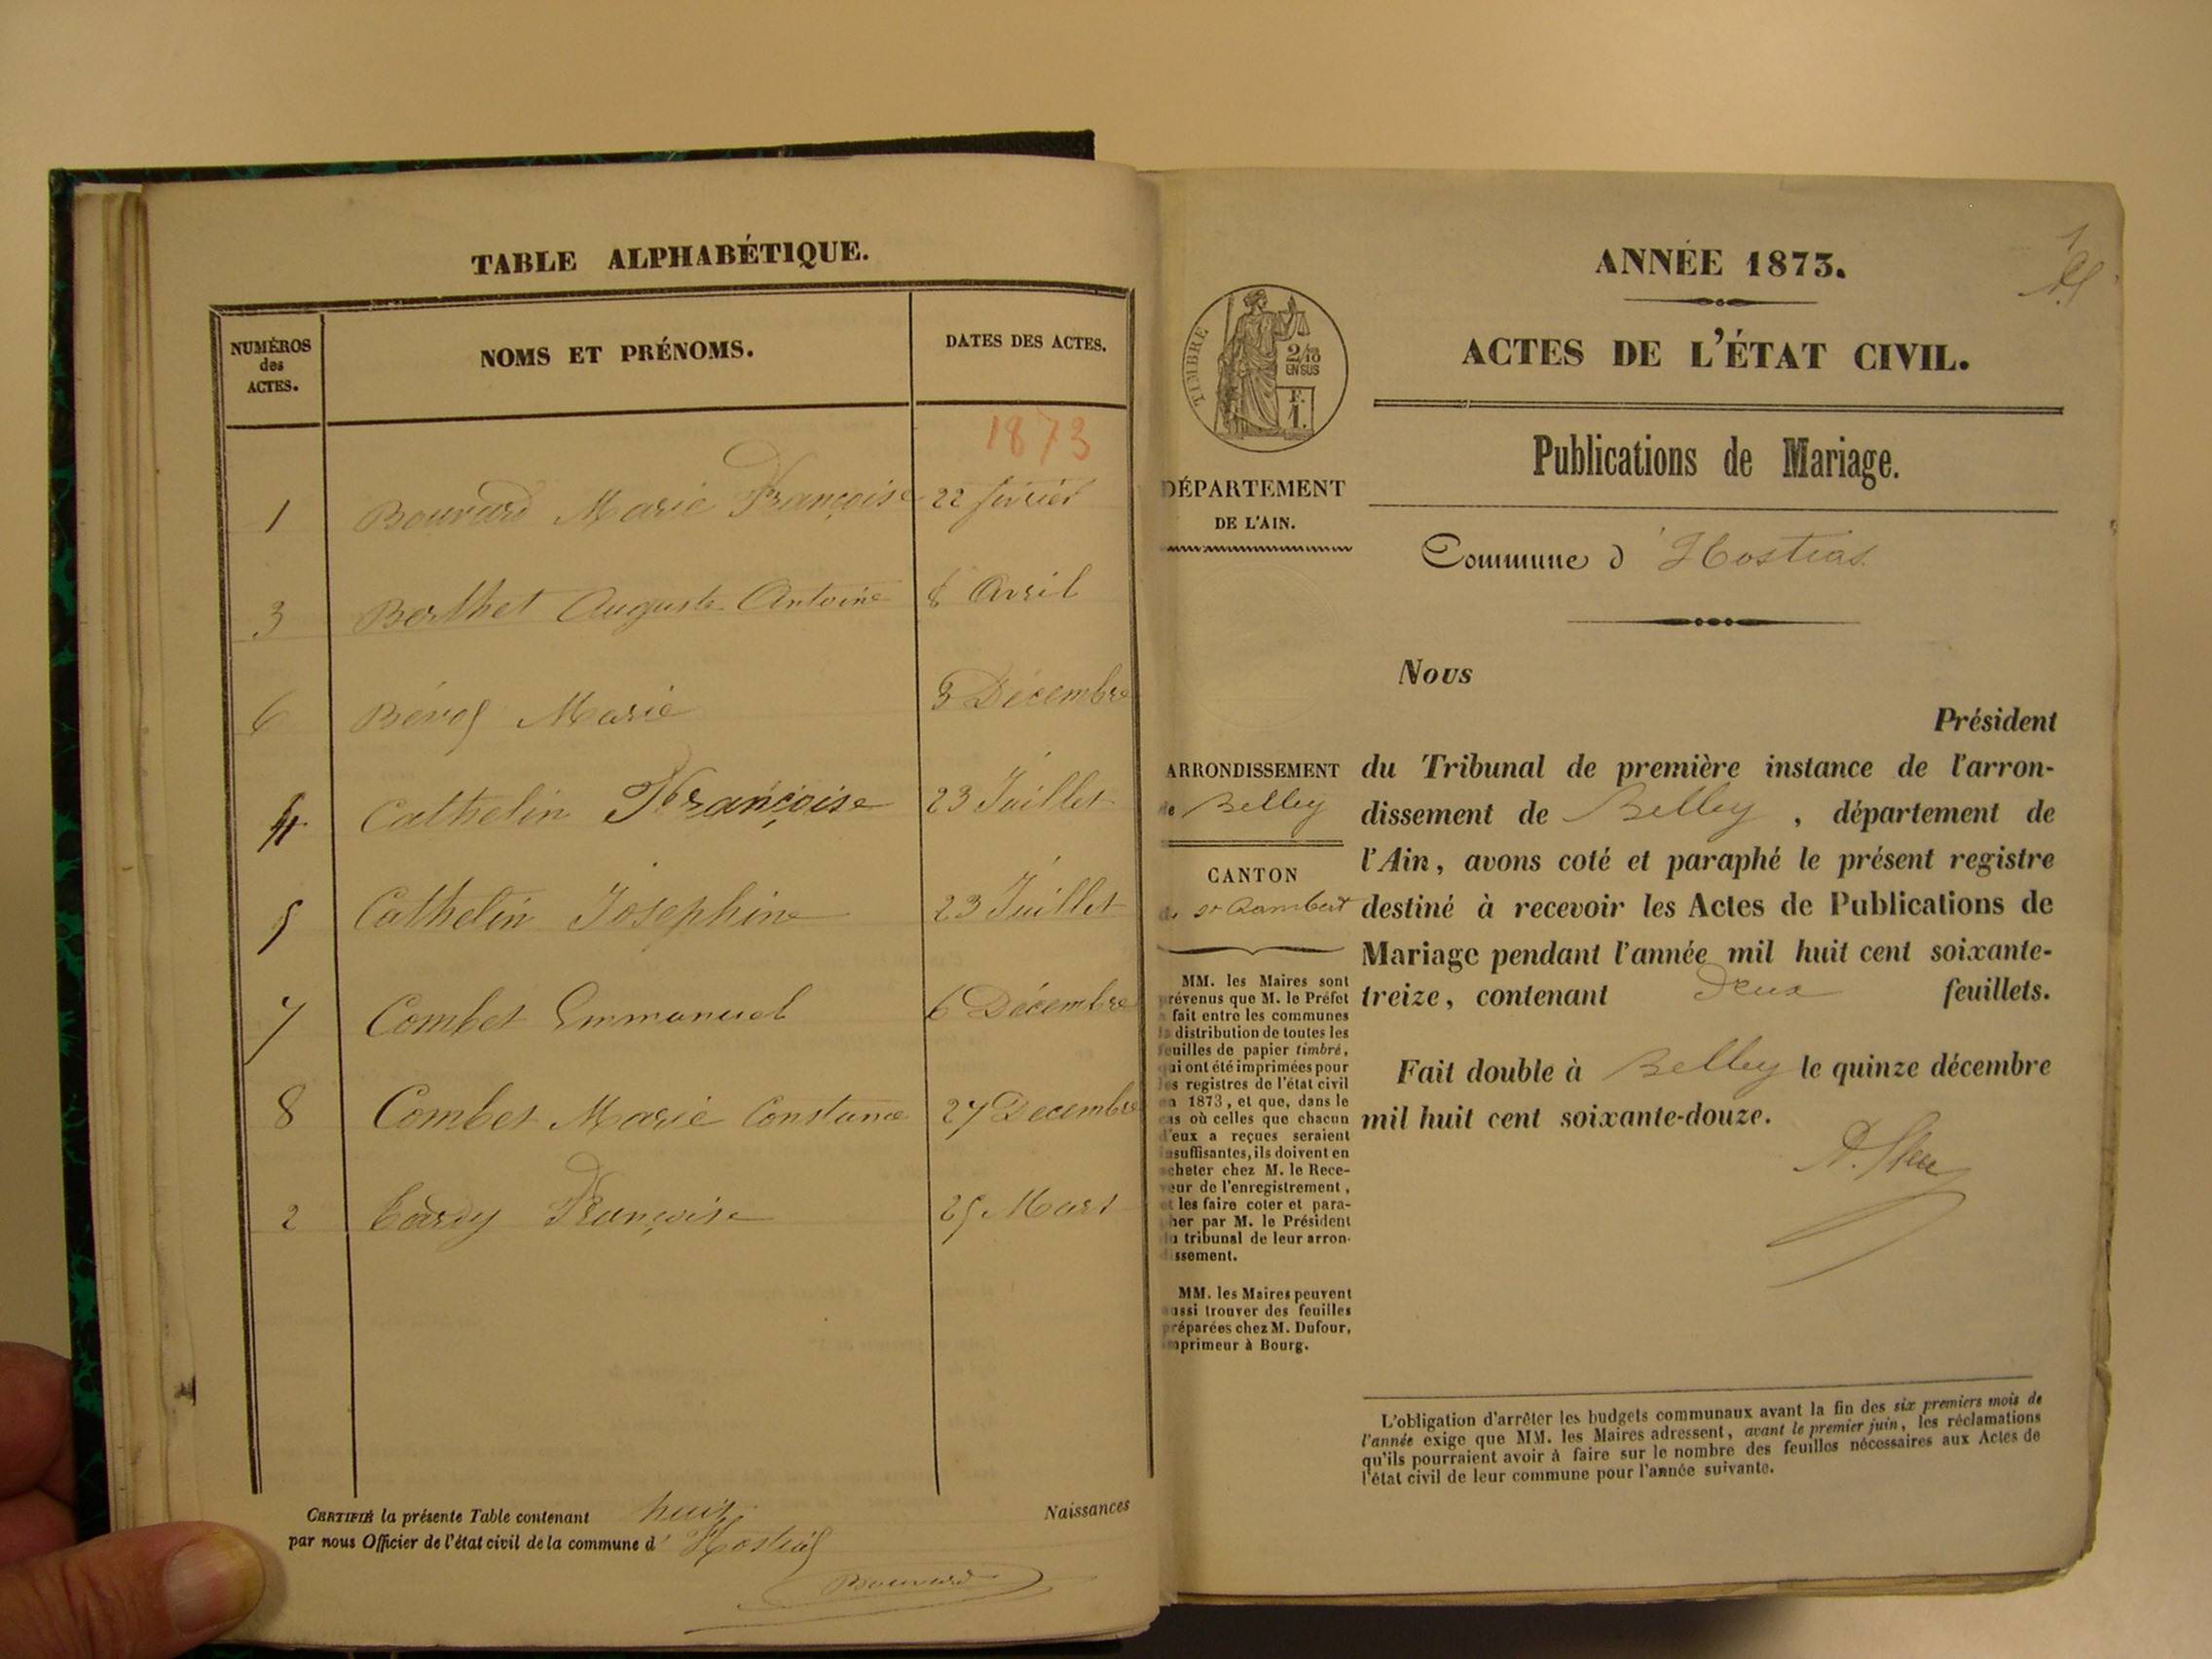 TABLE ALPHABÉTIQUE.
NUMÉROS
des
ACTES.
NOMS ET PRÉNOMS.
DATES DES ACTES.
1873
1 Bouvard Marie Françoise 22 février
3 Berthet Auguste Antoine 8 Avril
6 Marie 3 Décembre
4 Cathelin Françoise 23 Juillet
5 Cathelin Joséphine 23 Juillet
7 Combet Emmanuel 6 Décembre
8 Combet Marie Constance 27 Decembre
2 Tardy Françoise 25 Mars
CERTIFIÉ la présente Table contenant huit Naissances
par nous Officier de l'état civil de la commune d' Hostias
Bouvard
1
ANNÉE 1873.
ACTES DE L'ÉTAT CIVIL.
TIMBRE
2/10
EN SUS
F.
1.
Publications de Mariage.
DÉPARTEMENT
DE L'AIN.
Commune d'Hostias
Nous
Président
du Tribunal de première instance de l'arron-
dissement de Belley, département de
l'Ain, avons coté et paraphé le présent registre
destiné à recevoir les Actes de Publications de
Mariage pendant l'année mil huit cent soixante-
treize, contenant deux feuillets.
Fait double à Belley le quinze décembre
mil huit cent soixante-douze.
ARRONDISSEMENT
de Belley
CANTON
de St Rambert
MM. les Maires sont
prévenus que M. le Préfet
a fait entre les communes
la distribution de toutes les
feuilles de papier timbré,
qui ont été imprimées pour
les registres de l'état civil
en 1873, et que, dans le
cas où celles que chacun
d'eux a reçues seraient
insuffisantes, ils doivent en
acheter chez M. le Rece-
veur de l'enregistrement,
et les faire coter et para-
pher par M. le Président
du tribunal de leur arron-
dissement.
MM. les Maires peuvent
aussi trouver des feuilles
préparées chez M. Dufour,
imprimeur à Bourg.
L'obligation d'arrêter les budgets communaux avant la fin des six premiers mois de
l'année exige que MM. les Maires adressent, avant le premier juin, les réclamations
qu'ils pourraient avoir à faire sur le nombre des feuilles nécessaires aux Actes de
l'état civil de leur commune pour l'année suivante.